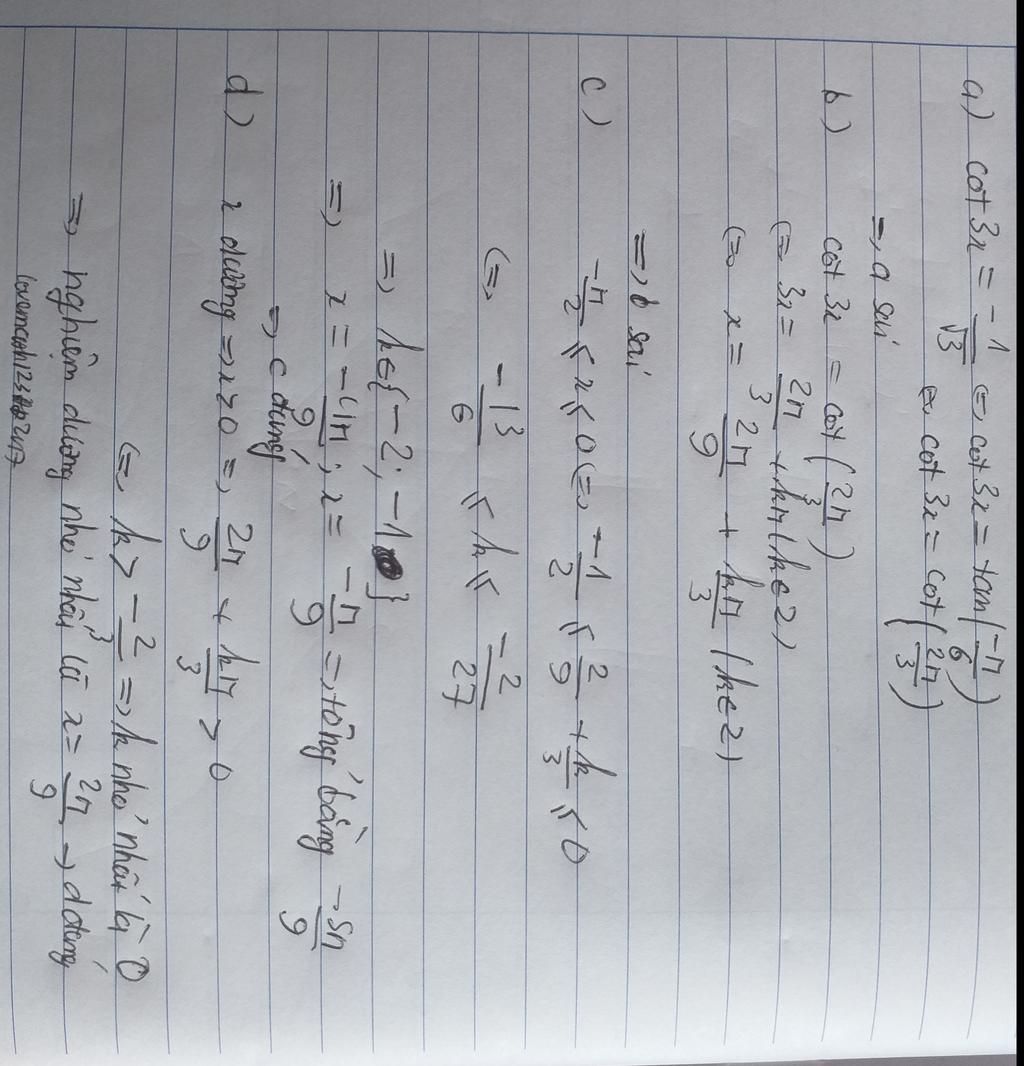 a) cot 3x = -1/√3 (=) cot 3x = tan(-π/6)
(=) cot 3x = cot(2π/3)
=) a sai
b) cot 3x = cot(2π/3)
(=) 3x = 2π/3 + kπ (k∈Z)
(=) x = 2π/9 + kπ/3 (k∈Z)
=) b sai
c) -π/2 ≤ x ≤ 0 (=) -1/2 ≤ 2/9 + k/3 ≤ 0
(=) -13/6 ≤ k ≤ -2/27
=) k∈{-2; -1}
=) x = -4π/9; x = -π/9 =) tổng bằng -5π/9
=) c đúng
d) x dương =) x>0 =) 2π/9 + kπ/3 > 0
(=) k > -2/3 =) k nhỏ nhất là 0
=) nghiệm dương nhỏ nhất là x = 2π/9 =) d đúng